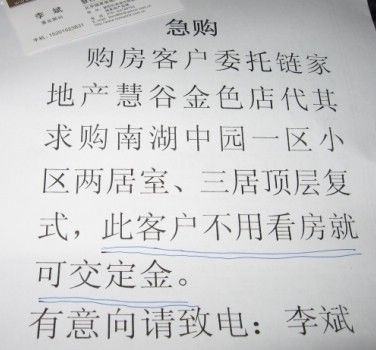 李 斌
急购
购房客户委托链家
地产慧谷金色店代其
求购南湖中园一区小
区两居室、三居顶层复
式，此客户不用看房就
可交定金。
有意向请致电：李斌